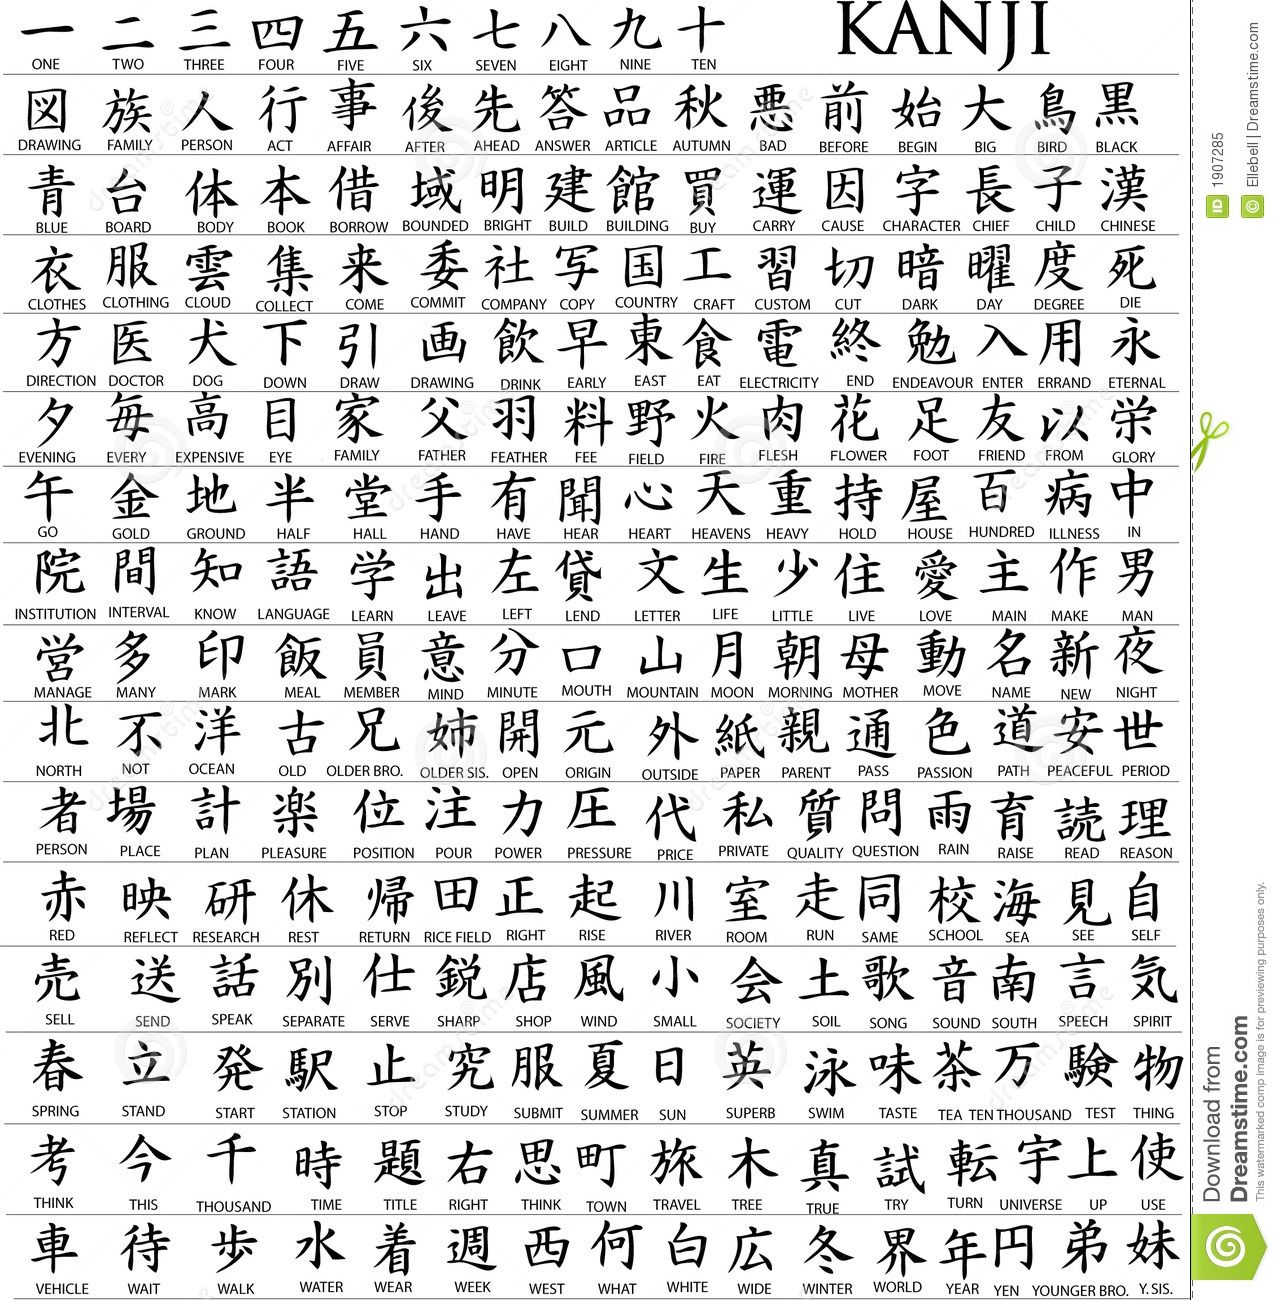 一 二 三 四 五 六 七 八 九 十 KANJI
ONE TWO THREE FOUR FIVE SIX SEVEN EIGHT NINE TEN
図 族 人 行 事 後 先 答 品 秋 悪 前 始 大 鳥 黒
DRAWING FAMILY PERSON ACT AFFAIR AFTER AHEAD ANSWER ARTICLE AUTUMN BAD BEFORE BEGIN BIG BIRD BLACK
青 台 体 本 借 域 明 建 館 買 運 因 字 長 子 漢
BLUE BOARD BODY BOOK BORROW BOUNDED BRIGHT BUILD BUILDING BUY CARRY CAUSE CHARACTER CHIEF CHILD CHINESE
衣 服 雲 集 来 委 社 写 国 工 習 切 暗 曜 度 死
CLOTHES CLOTHING CLOUD COLLECT COME COMMIT COMPANY COPY COUNTRY CRAFT CUSTOM CUT DARK DAY DEGREE DIE
方 医 犬 下 引 画 飲 早 東 食 電 終 勉 入 用 永
DIRECTION DOCTOR DOG DOWN DRAW DRAWING DRINK EARLY EAST EAT ELECTRICITY END ENDEAVOUR ENTER ERRAND ETERNAL
夕 毎 高 目 家 父 羽 料 野 火 肉 花 足 友 以 栄
EVENING EVERY EXPENSIVE EYE FAMILY FATHER FEATHER FEE FIELD FIRE FLESH FLOWER FOOT FRIEND FROM GLORY
午 金 地 半 堂 手 有 聞 心 天 重 持 屋 百 病 中
GO GOLD GROUND HALF HALL HAND HAVE HEAR HEART HEAVENS HEAVY HOLD HOUSE HUNDRED ILLNESS IN
院 間 知 語 学 出 左 貸 文 生 少 住 愛 主 作 男
INSTITUTION INTERVAL KNOW LANGUAGE LEARN LEAVE LEFT LEND LETTER LIFE LITTLE LIVE LOVE MAIN MAKE MAN
営 多 印 飯 員 意 分 口 山 月 朝 母 動 名 新 夜
MANAGE MANY MARK MEAL MEMBER MIND MINUTE MOUTH MOUNTAIN MOON MORNING MOTHER MOVE NAME NEW NIGHT
北 不 洋 古 兄 姉 開 元 外 紙 親 通 色 道 安 世
NORTH NOT OCEAN OLD OLDER BRO. OLDER SIS. OPEN ORIGIN OUTSIDE PAPER PARENT PASS PASSION PATH PEACEFUL PERIOD
者 場 計 楽 位 注 力 圧 代 私 質 問 雨 育 読 理
PERSON PLACE PLAN PLEASURE POSITION POUR POWER PRESSURE PRICE PRIVATE QUALITY QUESTION RAIN RAISE READ REASON
赤 映 研 休 帰 田 正 起 川 室 走 同 校 海 見 自
RED REFLECT RESEARCH REST RETURN RICE FIELD RIGHT RISE RIVER ROOM RUN SAME SCHOOL SEA SEE SELF
売 送 話 別 仕 鋭 店 風 小 会 土 歌 音 南 言 気
SELL SEND SPEAK SEPARATE SERVE SHARP SHOP WIND SMALL SOCIETY SOIL SONG SOUND SOUTH SPEECH SPIRIT
春 立 発 駅 止 究 服 夏 日 英 泳 味 茶 万 験 物
SPRING STAND START STATION STOP STUDY SUBMIT SUMMER SUN SUPERB SWIM TASTE TEA TEN THOUSAND TEST THING
考 今 千 時 題 右 思 町 旅 木 真 試 転 宇 上 使
THINK THIS THOUSAND TIME TITLE RIGHT THINK TOWN TRAVEL TREE TRUE TRY TURN UNIVERSE UP USE
車 待 歩 水 着 週 西 何 白 広 冬 界 年 円 弟 妹
VEHICLE WAIT WALK WATER WEAR WEEK WEST WHAT WHITE WIDE WINTER WORLD YEAR YEN YOUNGER BRO. Y. SIS.
ID 1907285
© Ellebell | Dreamstime.com
Download from
Dreamstime.com
This watermarked comp image is for previewing purposes only.